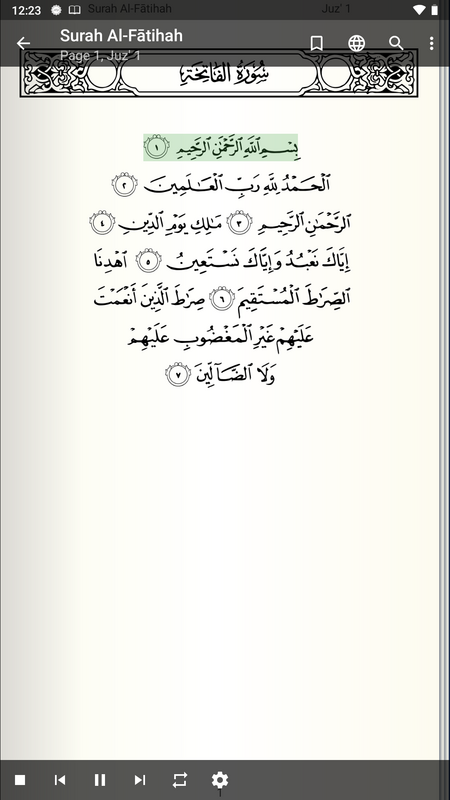 12:23
Surah Al-Fātihah
Juz' 1
Surah Al-Fātihah
Page 1, Juz' 1
سُورَةُ الفَاتِحَةِ
بِسْمِ ٱللَّهِ ٱلرَّحْمَٰنِ ٱلرَّحِيمِ ١
ٱلْحَمْدُ لِلَّهِ رَبِّ ٱلْعَٰلَمِينَ ٢
ٱلرَّحْمَٰنِ ٱلرَّحِيمِ ٣ مَٰلِكِ يَوْمِ ٱلدِّينِ ٤
إِيَّاكَ نَعْبُدُ وَإِيَّاكَ نَسْتَعِينُ ٥ ٱهْدِنَا
ٱلصِّرَٰطَ ٱلْمُسْتَقِيمَ ٦ صِرَٰطَ ٱلَّذِينَ أَنْعَمْتَ
عَلَيْهِمْ غَيْرِ ٱلْمَغْضُوبِ عَلَيْهِمْ
وَلَا ٱلضَّآلِّينَ ٧
1